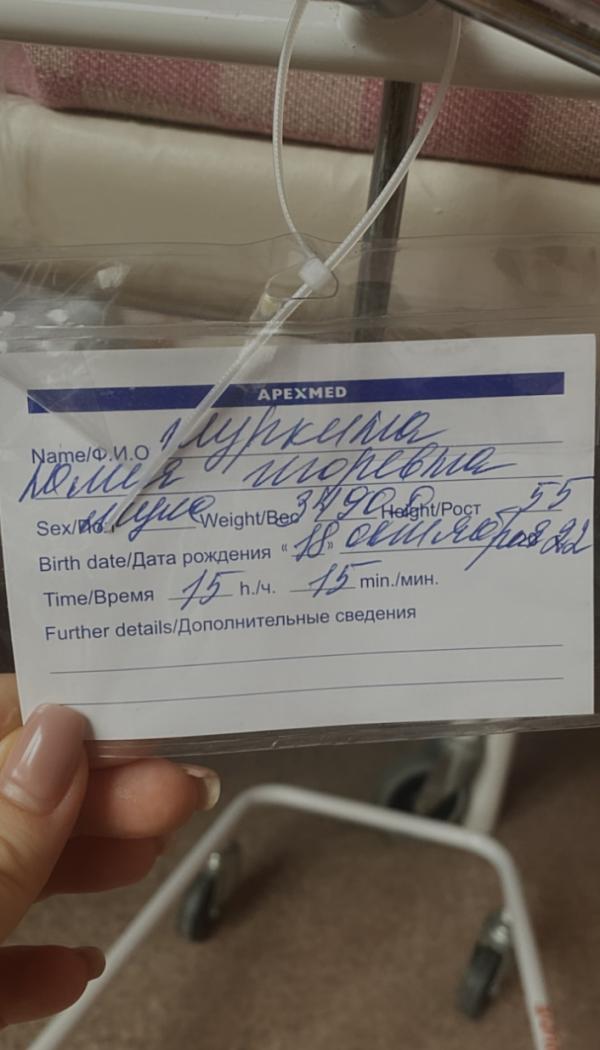 APEXMED
Name/Ф.И.О
Юлия игоревна
Sex/Пол Weight/Вес 3490 Height/Рост 55
Birth date/Дата рождения “18” октября 22
Time/Время 15 h./ч. 15 min./мин.
Further details/Дополнительные сведения